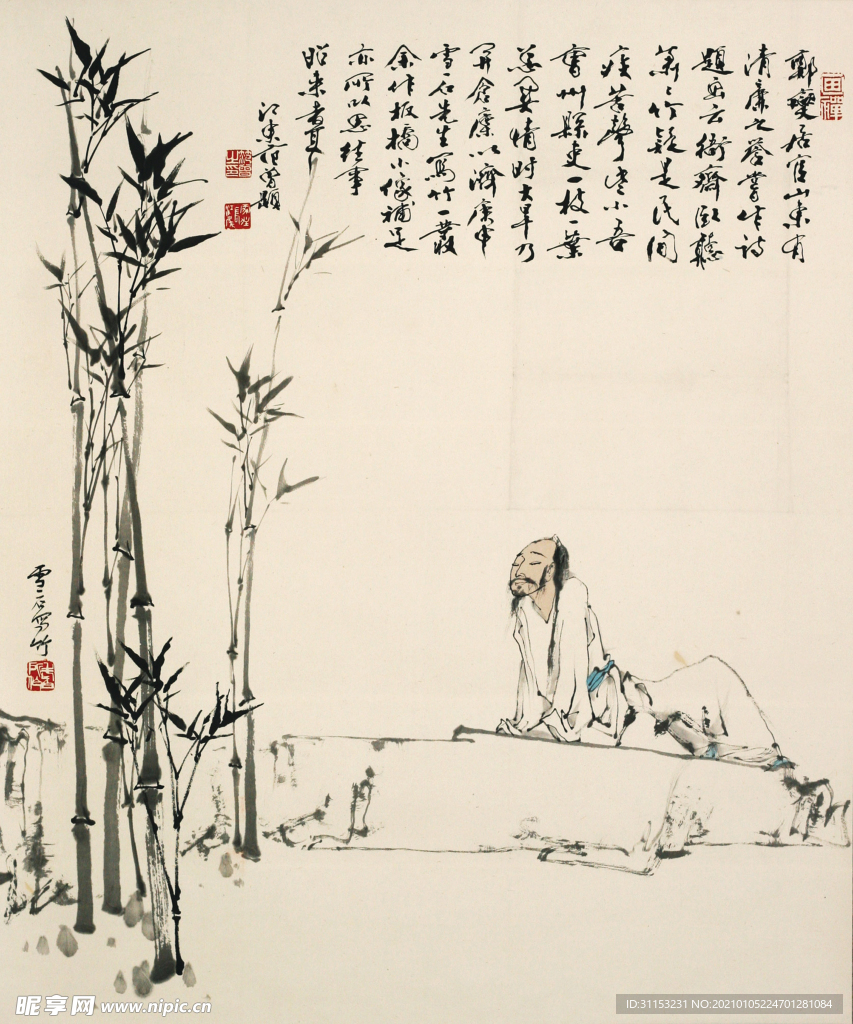 鄭燮居官山東有
清廉之譽嘗作詩
題畫云衙齋臥聽
蕭々竹疑是民間
疾苦聲些小吾
曹州縣吏一枝一葉
總關情時大旱乃
開倉廩以濟庚申
雪石先生寫竹一叢
余作板橋小像補足
亦所以思往事
昭來者耳
江東范曾題
雪石寫竹
昵享网 www.nipic.cn
ID:31153231 NO:20210105224701281084